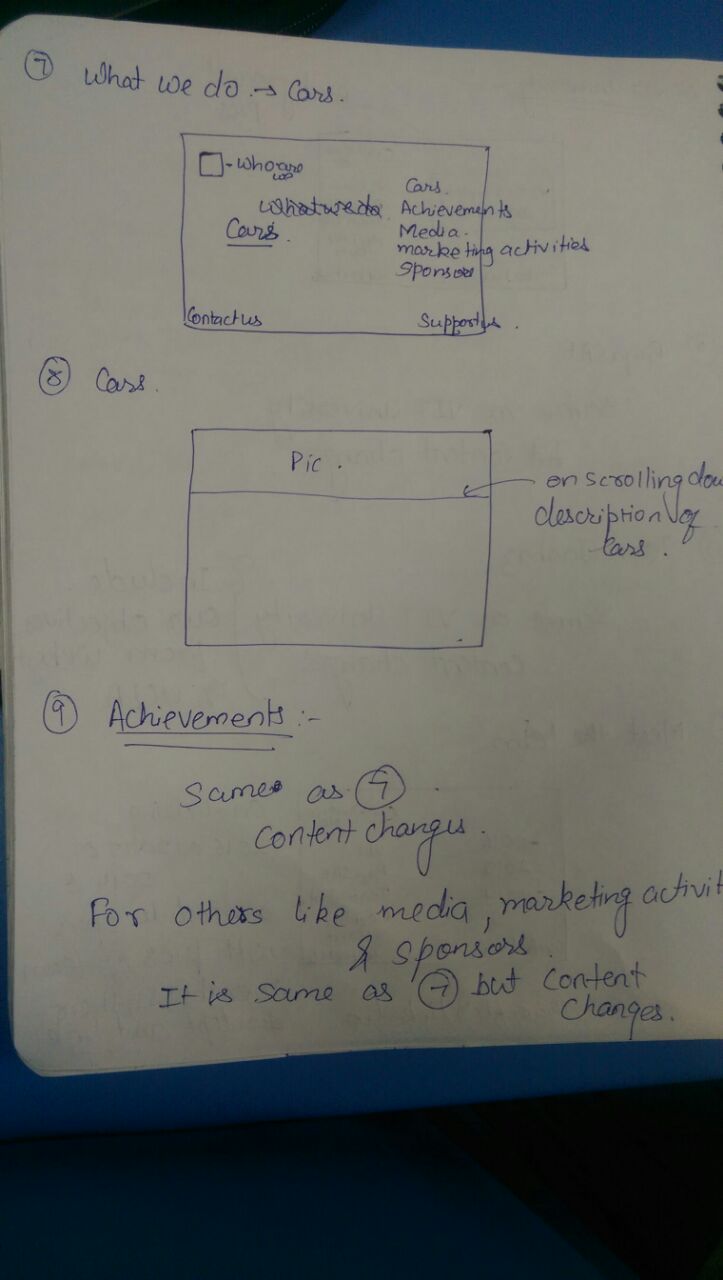 7 What we do → Cars.
- who are
we
Cars.
what we do Achievements
Cars. Media.
marketing activities
Sponsors
Contact us Support us.
8 Cars.
Pic.
on scrolling
description of
Cars.
9 Achievements :-
Same as 7.
content changes.
For others like media, marketing
& sponsors.
It is same as 7 but content
changes.